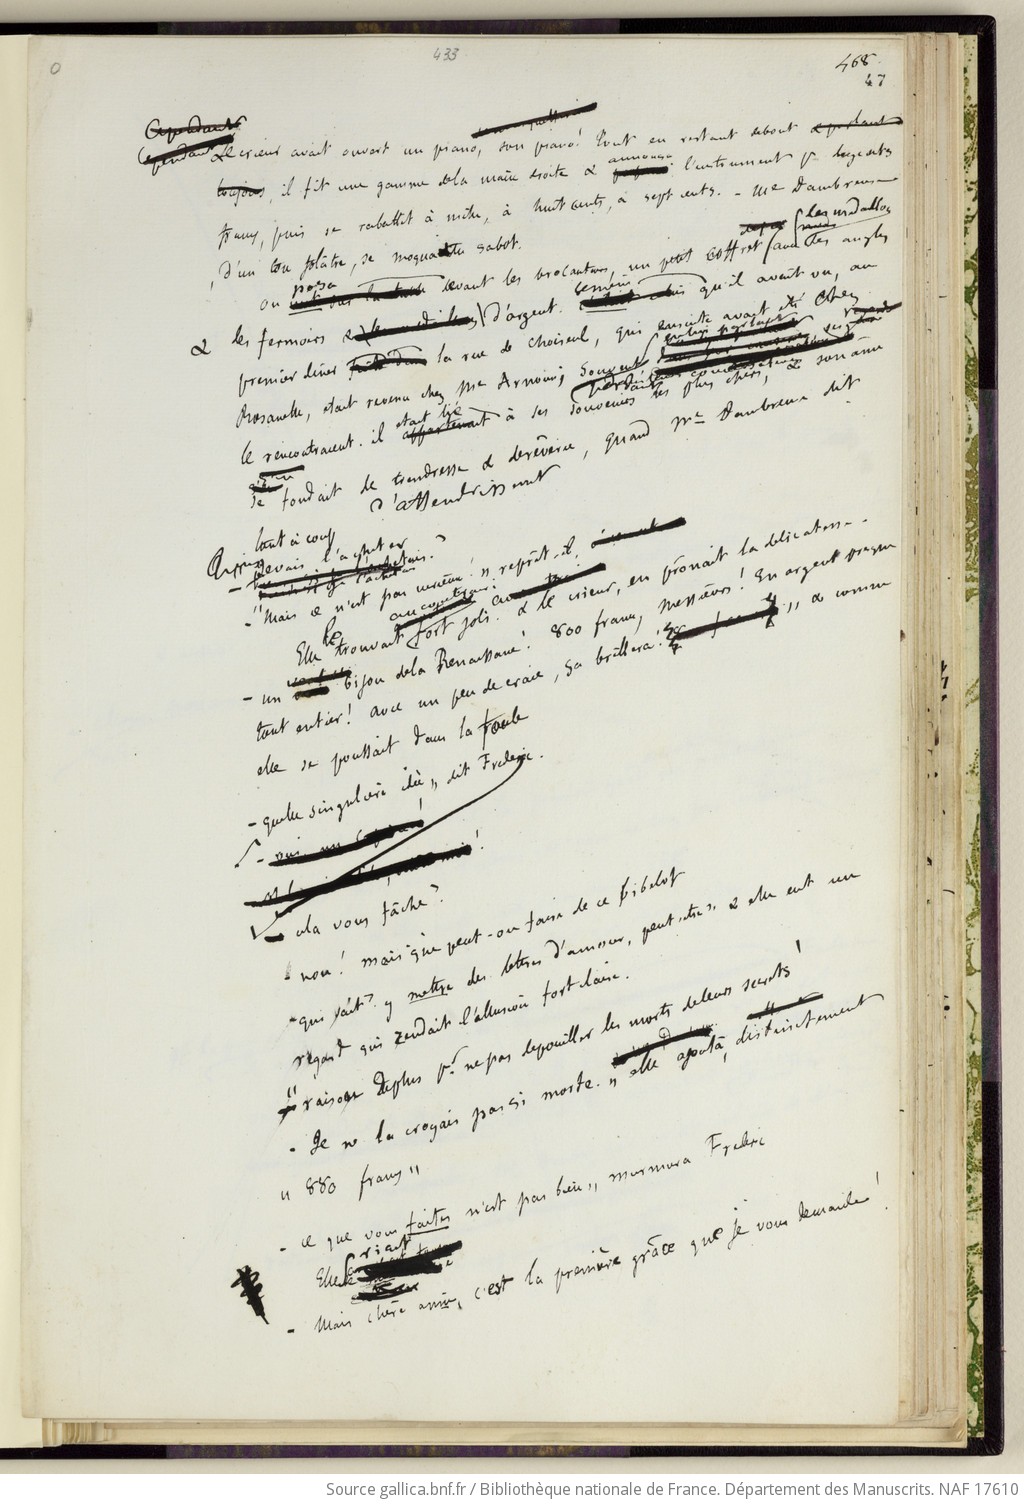 433
468
47
0
Cependant
Cependant Le crieur avait ouvert un piano, son piano! Tout en restant debout
toujours, il fit une gamme de la main droite & annonça l'instrument pr douze cents
francs, puis se rabattit à mille, à huit cents, à sept cents. - Me Dambreuse
, d'un ton folâtre, se moquait du sabot.
On posa devant les brocanteurs, un petit coffret avec des les médaillons angles
& les fermoirs d'argent. le même qu'il avait vu, au
premier dîner la rue de Choiseul, qui ensuite avait été chez
Rosanette, était revenu chez Me Arnoux; Souvent
pendant leurs conversations ses yeux
le rencontraient. il était lié à ses souvenirs les plus chers, & son âme
se fondait de tendresse & de rêverie, quand Me Dambreuse dit
d'attendrissement
tout à coup
- Tiens je vais l'acheter
- "Mais ce n'est pas curieux! " reprit-il,
Elle le trouvait fort joli. & le crieur, en prônait la délicatesse -
- un bijou de la Renaissance! 800 francs, messieurs! En argent presque
tout entier! avec un peu de craie, ça brillera! " & comme
elle se poussait dans la foule
- quelle singulière idée,, dit Frederic.
- cela vous fâche?
- non! mais que peut-on faire de ce bibelot
- qui sait? y mettre des lettres d'amour, peut-être" & elle eut un
regard qui rendait l'allusion fort claire.
" raison de plus pr ne pas dépouiller les morts de leurs secrets!
- Je ne la croyais pas si morte. " elle ajouta, distinctement
" 880 francs "
- ce que vous faites n'est pas bien,, murmura Frederic
Elle riait
- Mais chère amie, c'est la première grâce que je vous demande!
Source gallica.bnf.fr / Bibliothèque nationale de France. Département des Manuscrits. NAF 17610